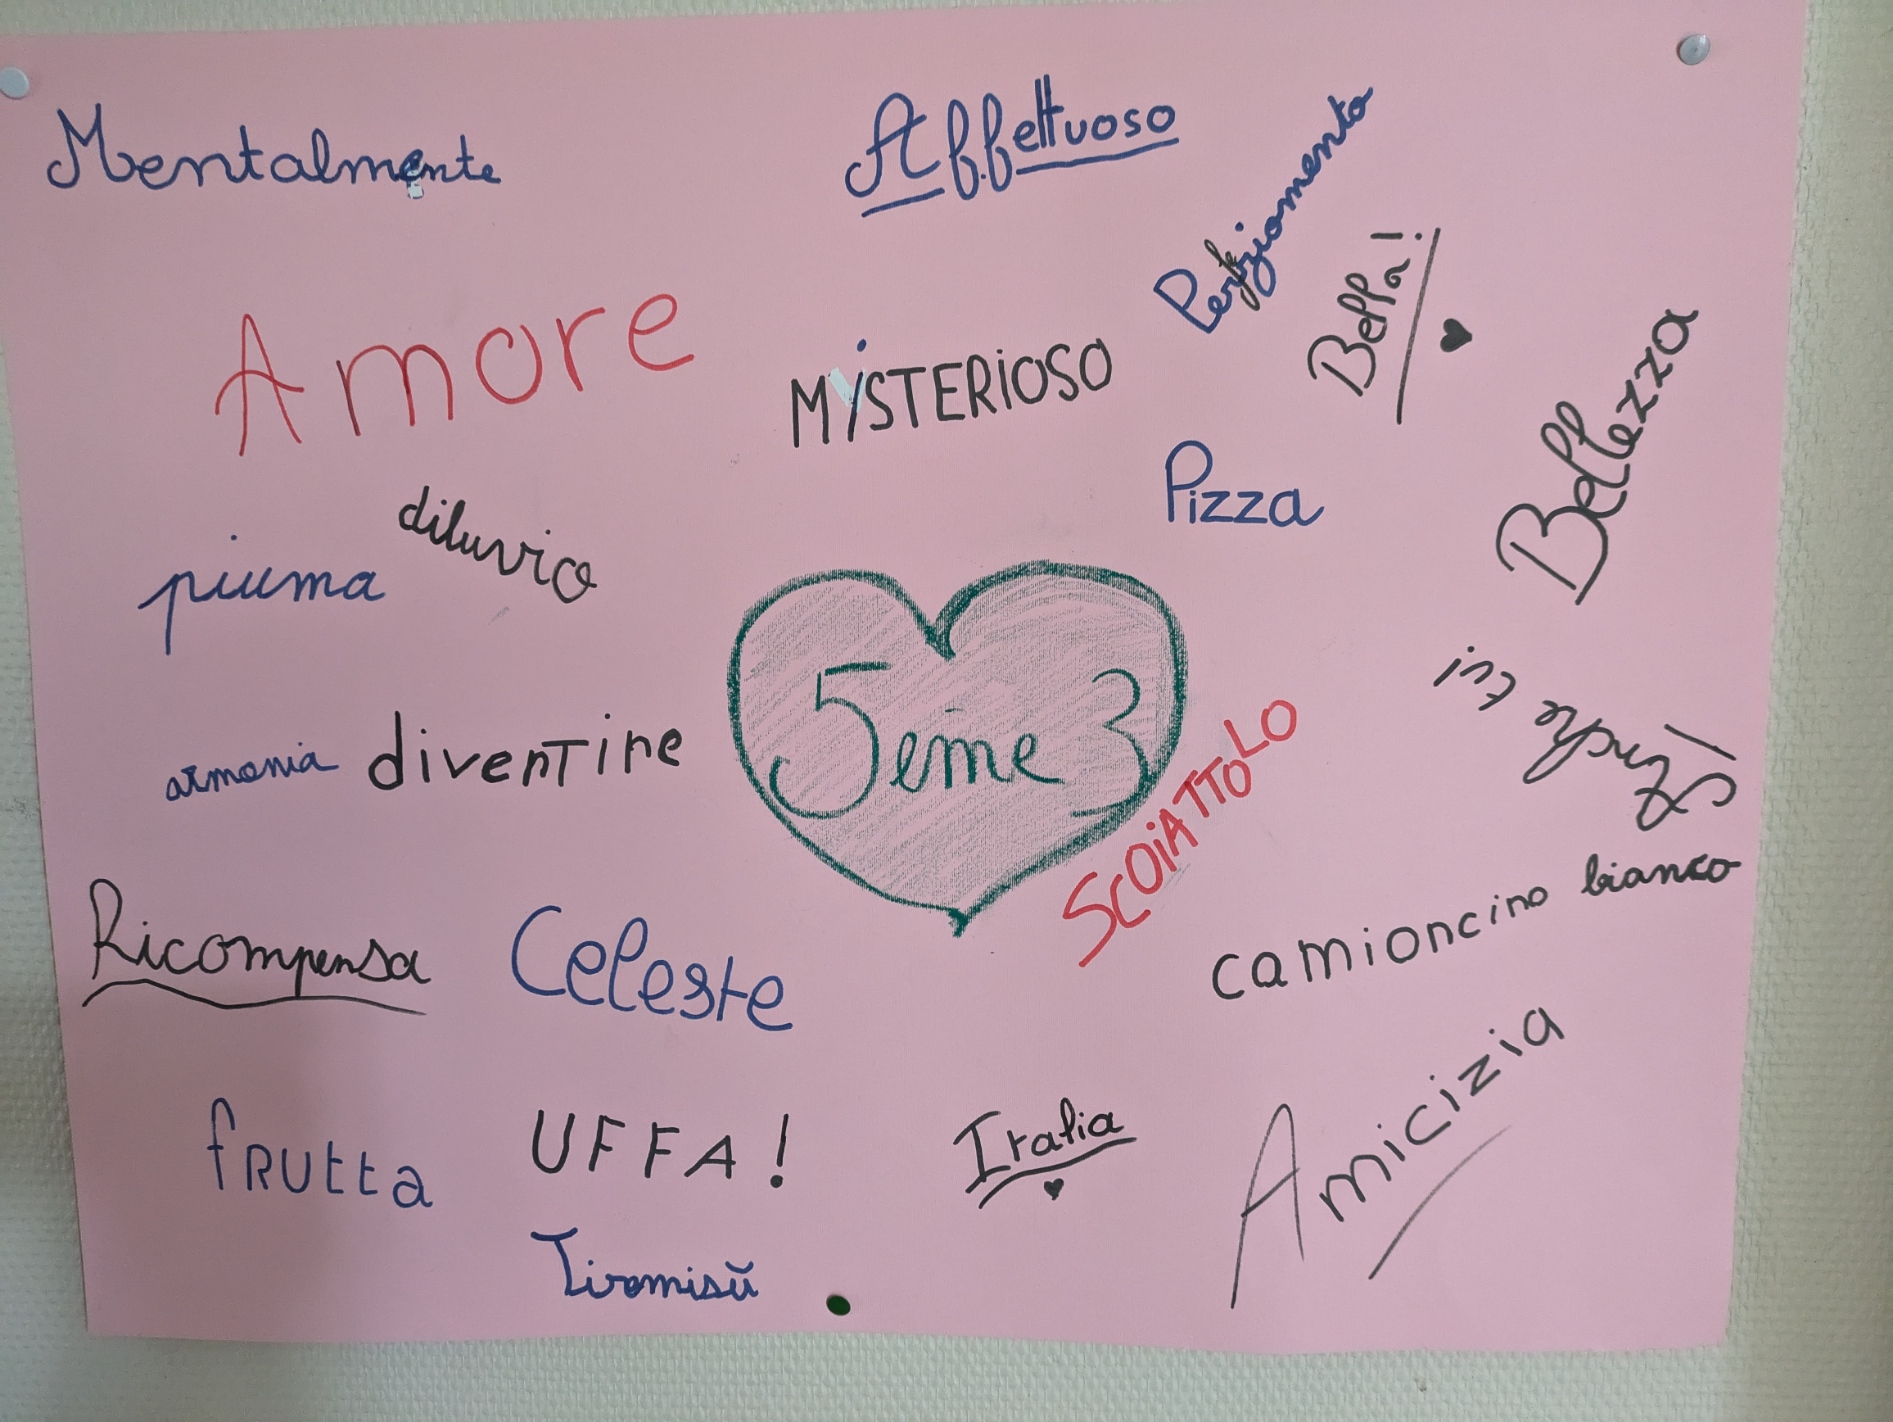 Mentalmente
Affettuoso
Bella!
Amore
MiSTERiOSO
Bellezza
Pizza
diluvio
piuma
5eme 3
armonia
divenTire
SCOiATTOLO
Ricompensa
Celeste
camioncino bianco
fRUtta
UFFA!
Italia
Amicizia
Tiramisŭ